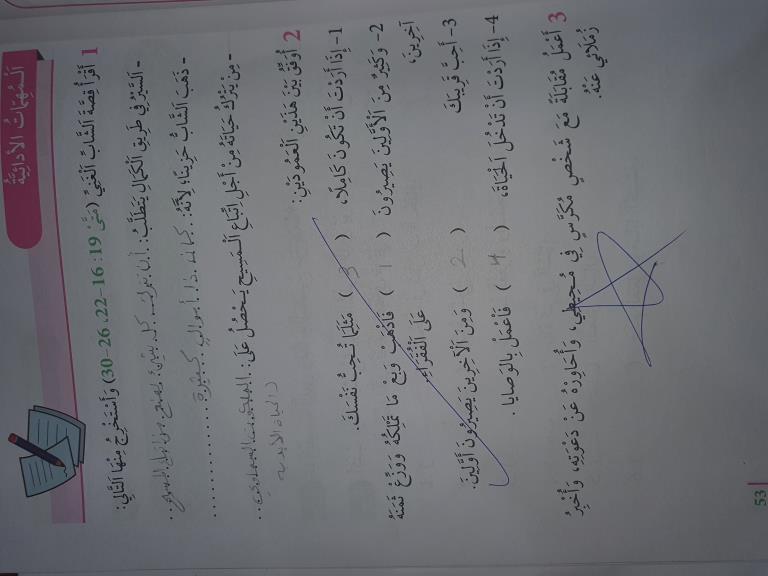 اَلْمُهِمَّاتُ الأَدائِيَّةُ
1 أَقْرَأُ قِصَّةَ الشَّابِّ الْغَنِيِّ (مَتَّى 19: 16-22، 26-30) وَأَسْتَخْرِجُ مِنْهَا التَّالِيَ:
- اَلسَّيْرُ فِي طَرِيقِ الْكَمَالِ يَتَطَلَّبُ: أن يترك كل شيء
- ذَهَبَ الشَّابُّ حَزِينًا، لِأَنَّهُ: كان ذا أموال كثيرة
- مَنْ يَتْرُكُ حَيَاتَهُ مِنْ أَجْلِ اتِّبَاعِ الْمَسِيحِ يَحْصُلُ عَلَى:
(الحياة الأبدية
2 أُوَفِّقُ بَيْنَ هَذَيْنِ الْعَمُودَيْنِ:
1- إِذَا أَرَدْتَ أَنْ تَكُونَ كَامِلًا، ( 3 ) مِثْلَمَا تُحِبُّ نَفْسَكَ.
2- وَكَثِيرٌ مِنَ الْأَوَّلِينَ يَصِيرُونَ ( 1 ) فَاذْهَبْ وَبِعْ مَا تَمْلِكُهُ وَوَزِّعْ ثَمَنَهُ
آخِرِينَ، عَلَى الْفُقَرَاءِ.
3- أَحِبَّ قَرِيبَكَ ( 2 ) وَمِنَ الْآخِرِينَ يَصِيرُونَ أَوَّلِينَ.
4- إِذَا أَرَدْتَ أَنْ تَدْخُلَ الْحَيَاةَ، ( 4 ) فَاعْمَلْ بِالْوَصَايَا.
3 أَعْمَلُ مُقَابَلَةً مَعَ شَخْصٍ مُكَرَّسٍ فِي مُحِيطِي، وَأُحَاوِرُهُ عَنْ دَعْوَتِهِ، وَأُخْبِرُ
زُمَلَائِي عَنْهُ.
53